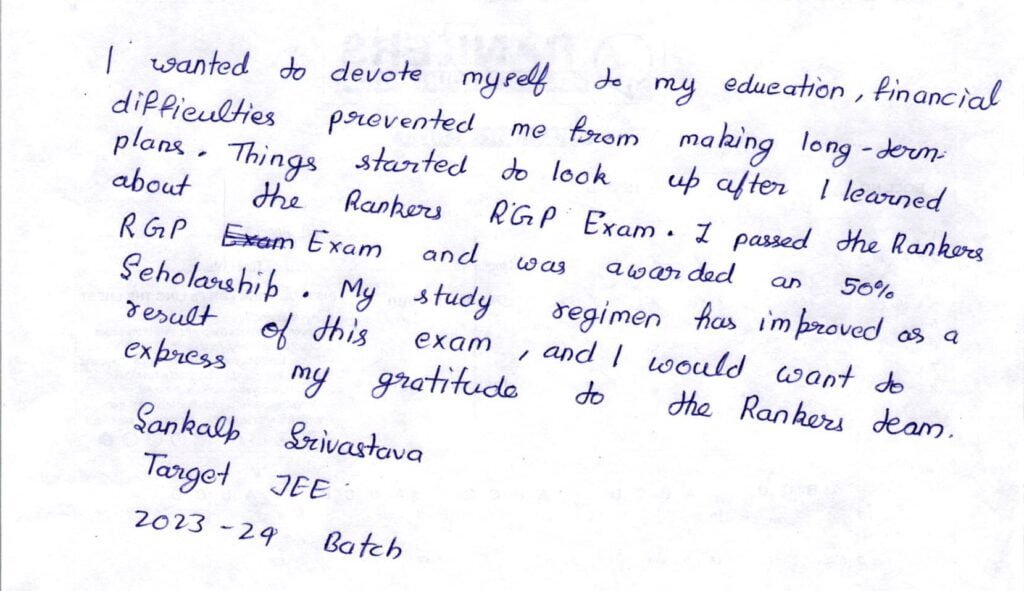 I wanted to devote myself to my education, financial
difficulties prevented me from making long-term
plans. Things started to look up after I learned
about the Rankers RGP Exam. I passed the Rankers
RGP Exam Exam and was awarded an 50%
Scholarship. My study regimen has improved as a
result of this exam, and I would want to
express my gratitude to the Rankers team.
Sankalp Srivastava
Target JEE
2023-24 Batch